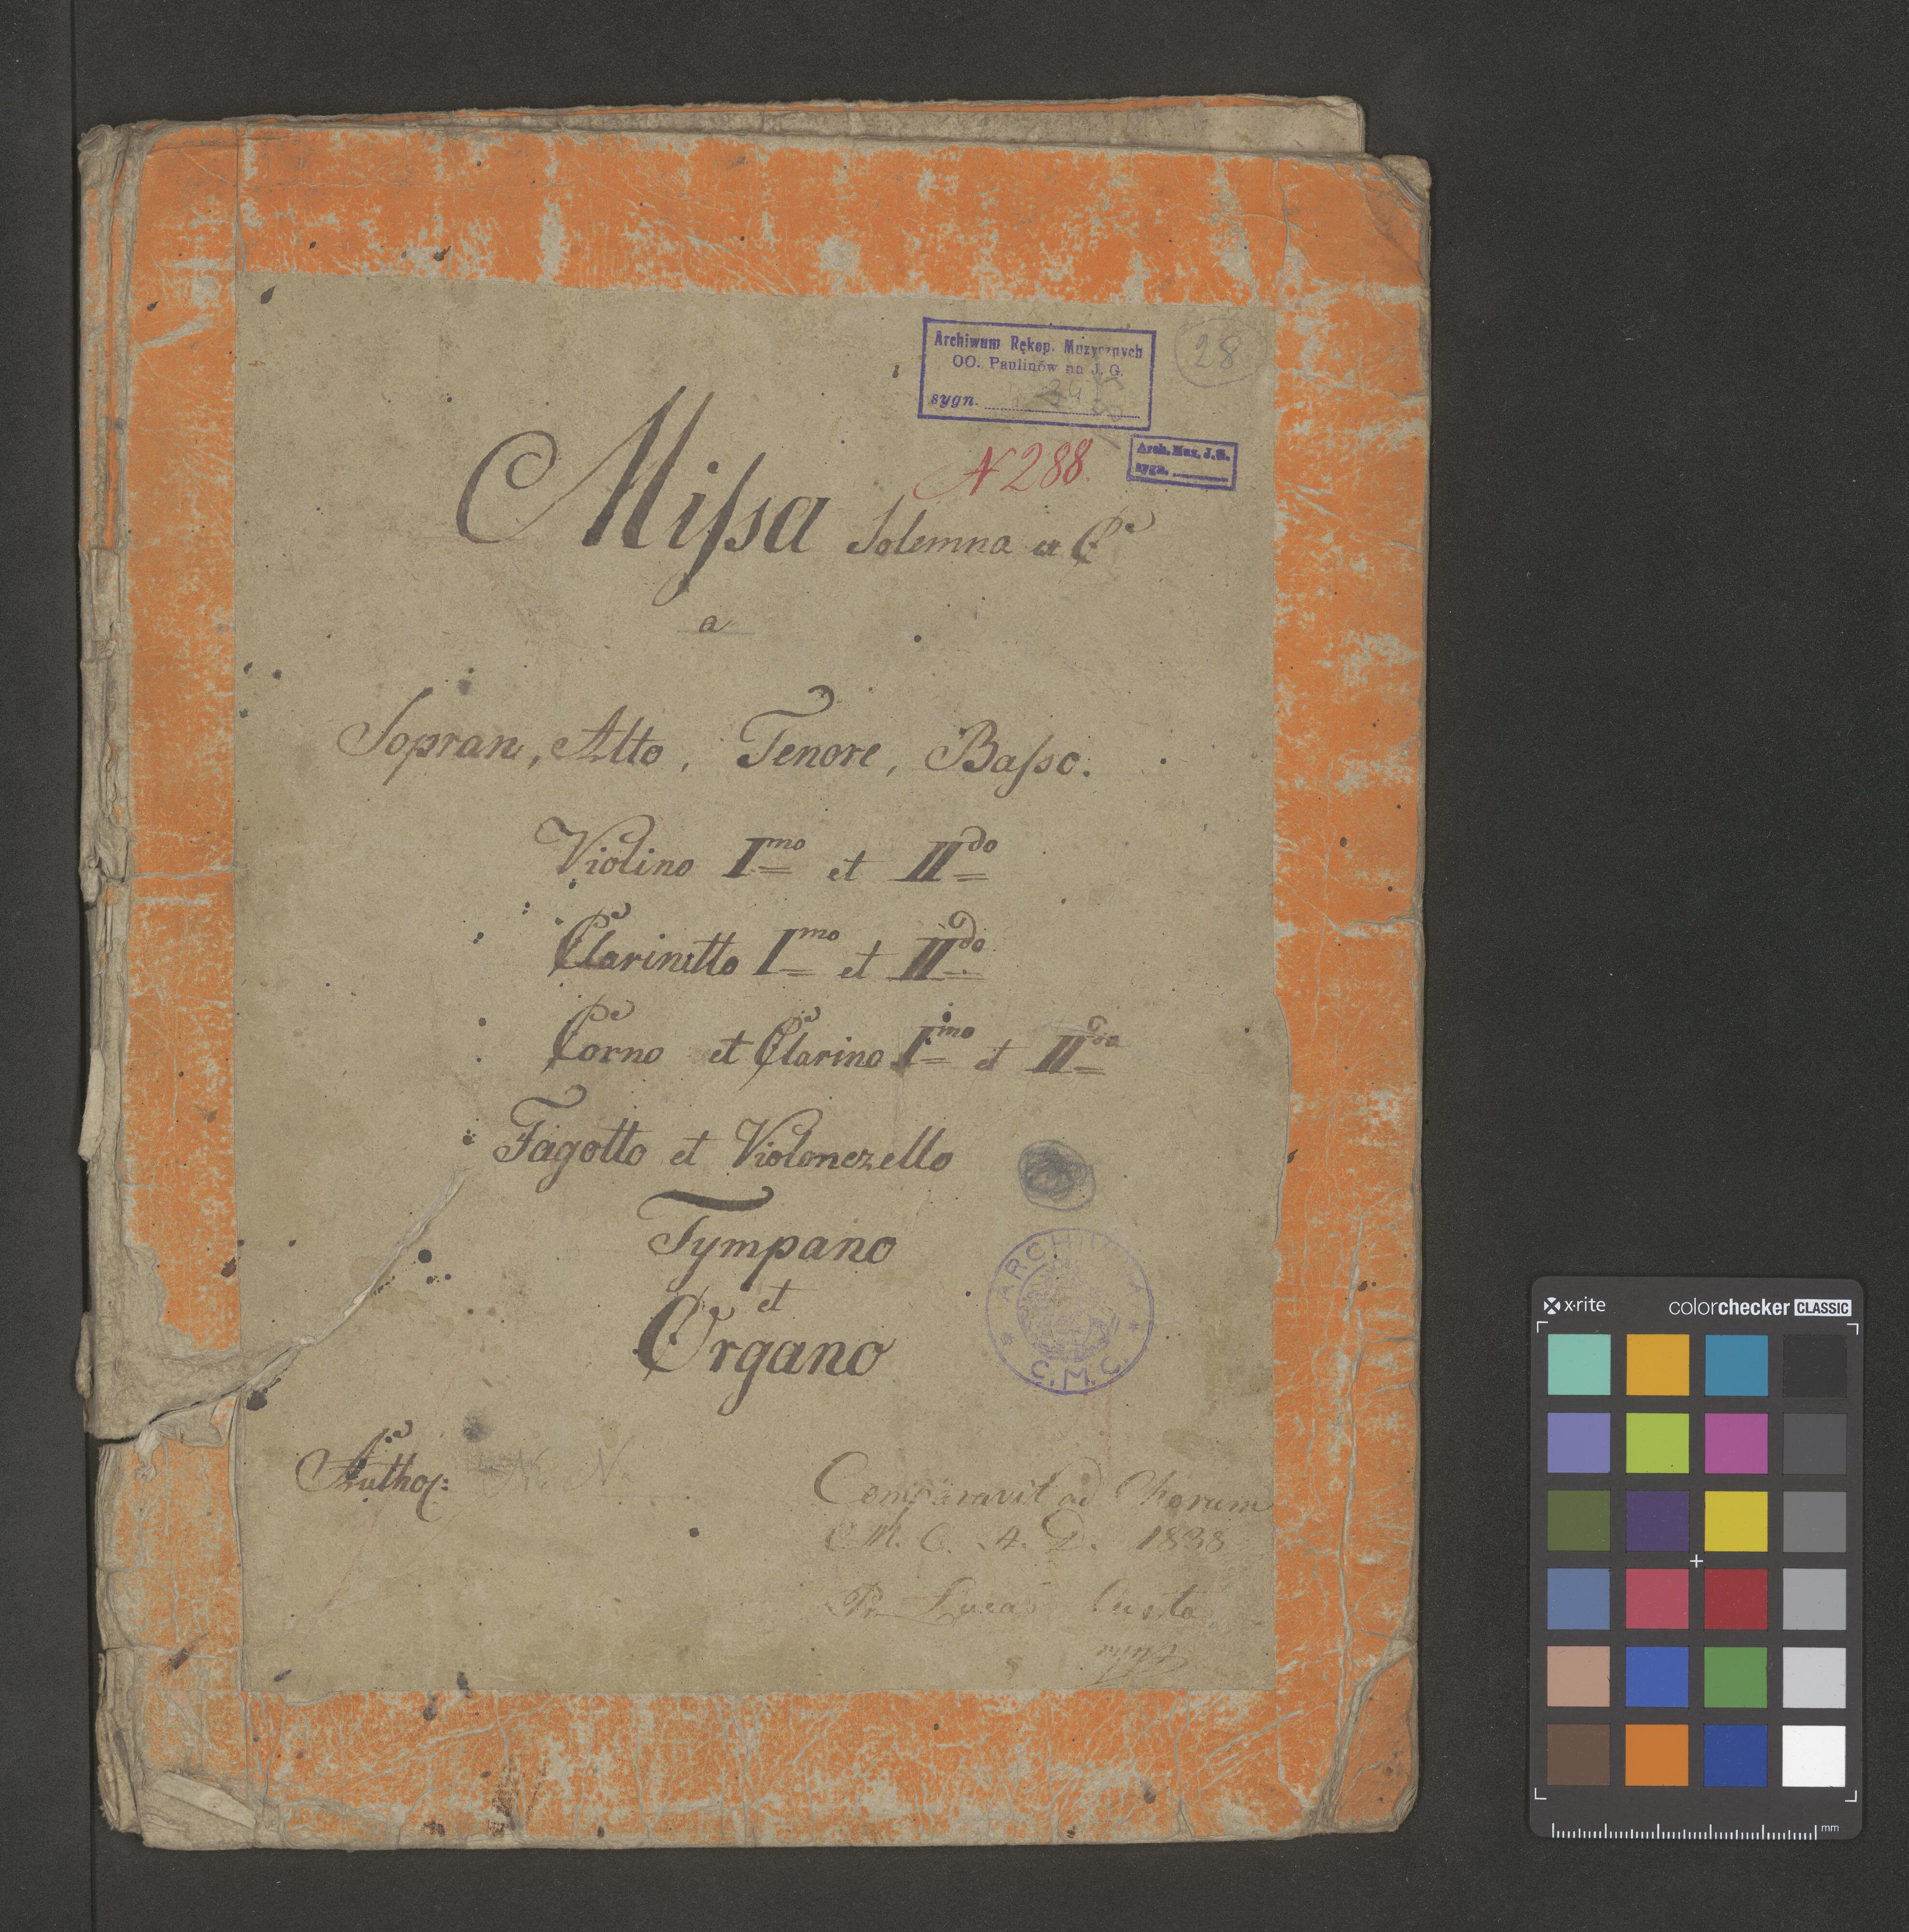 Archiwum Rękop. Muzycznych
OO. Paulinów na J. G.
sygn.
28
N 288.
Arch. Muz. J. G.
sygn.
Missa Solemna ex C
a
Sopran, Alto, Tenore, Basso.
Violino I mo et II do
Clarinetto I mo et II do
Corno et Clarino I mo et II do
Fagotto et Violonczello
Tympano
et
Organo
ARCHIVUM
C.M.C.
Author: N. N.
Comparavit ad Chorum
C. M. C. A. D. 1838
Pr. Lucas
x-rite
colorchecker CLASSIC
mm